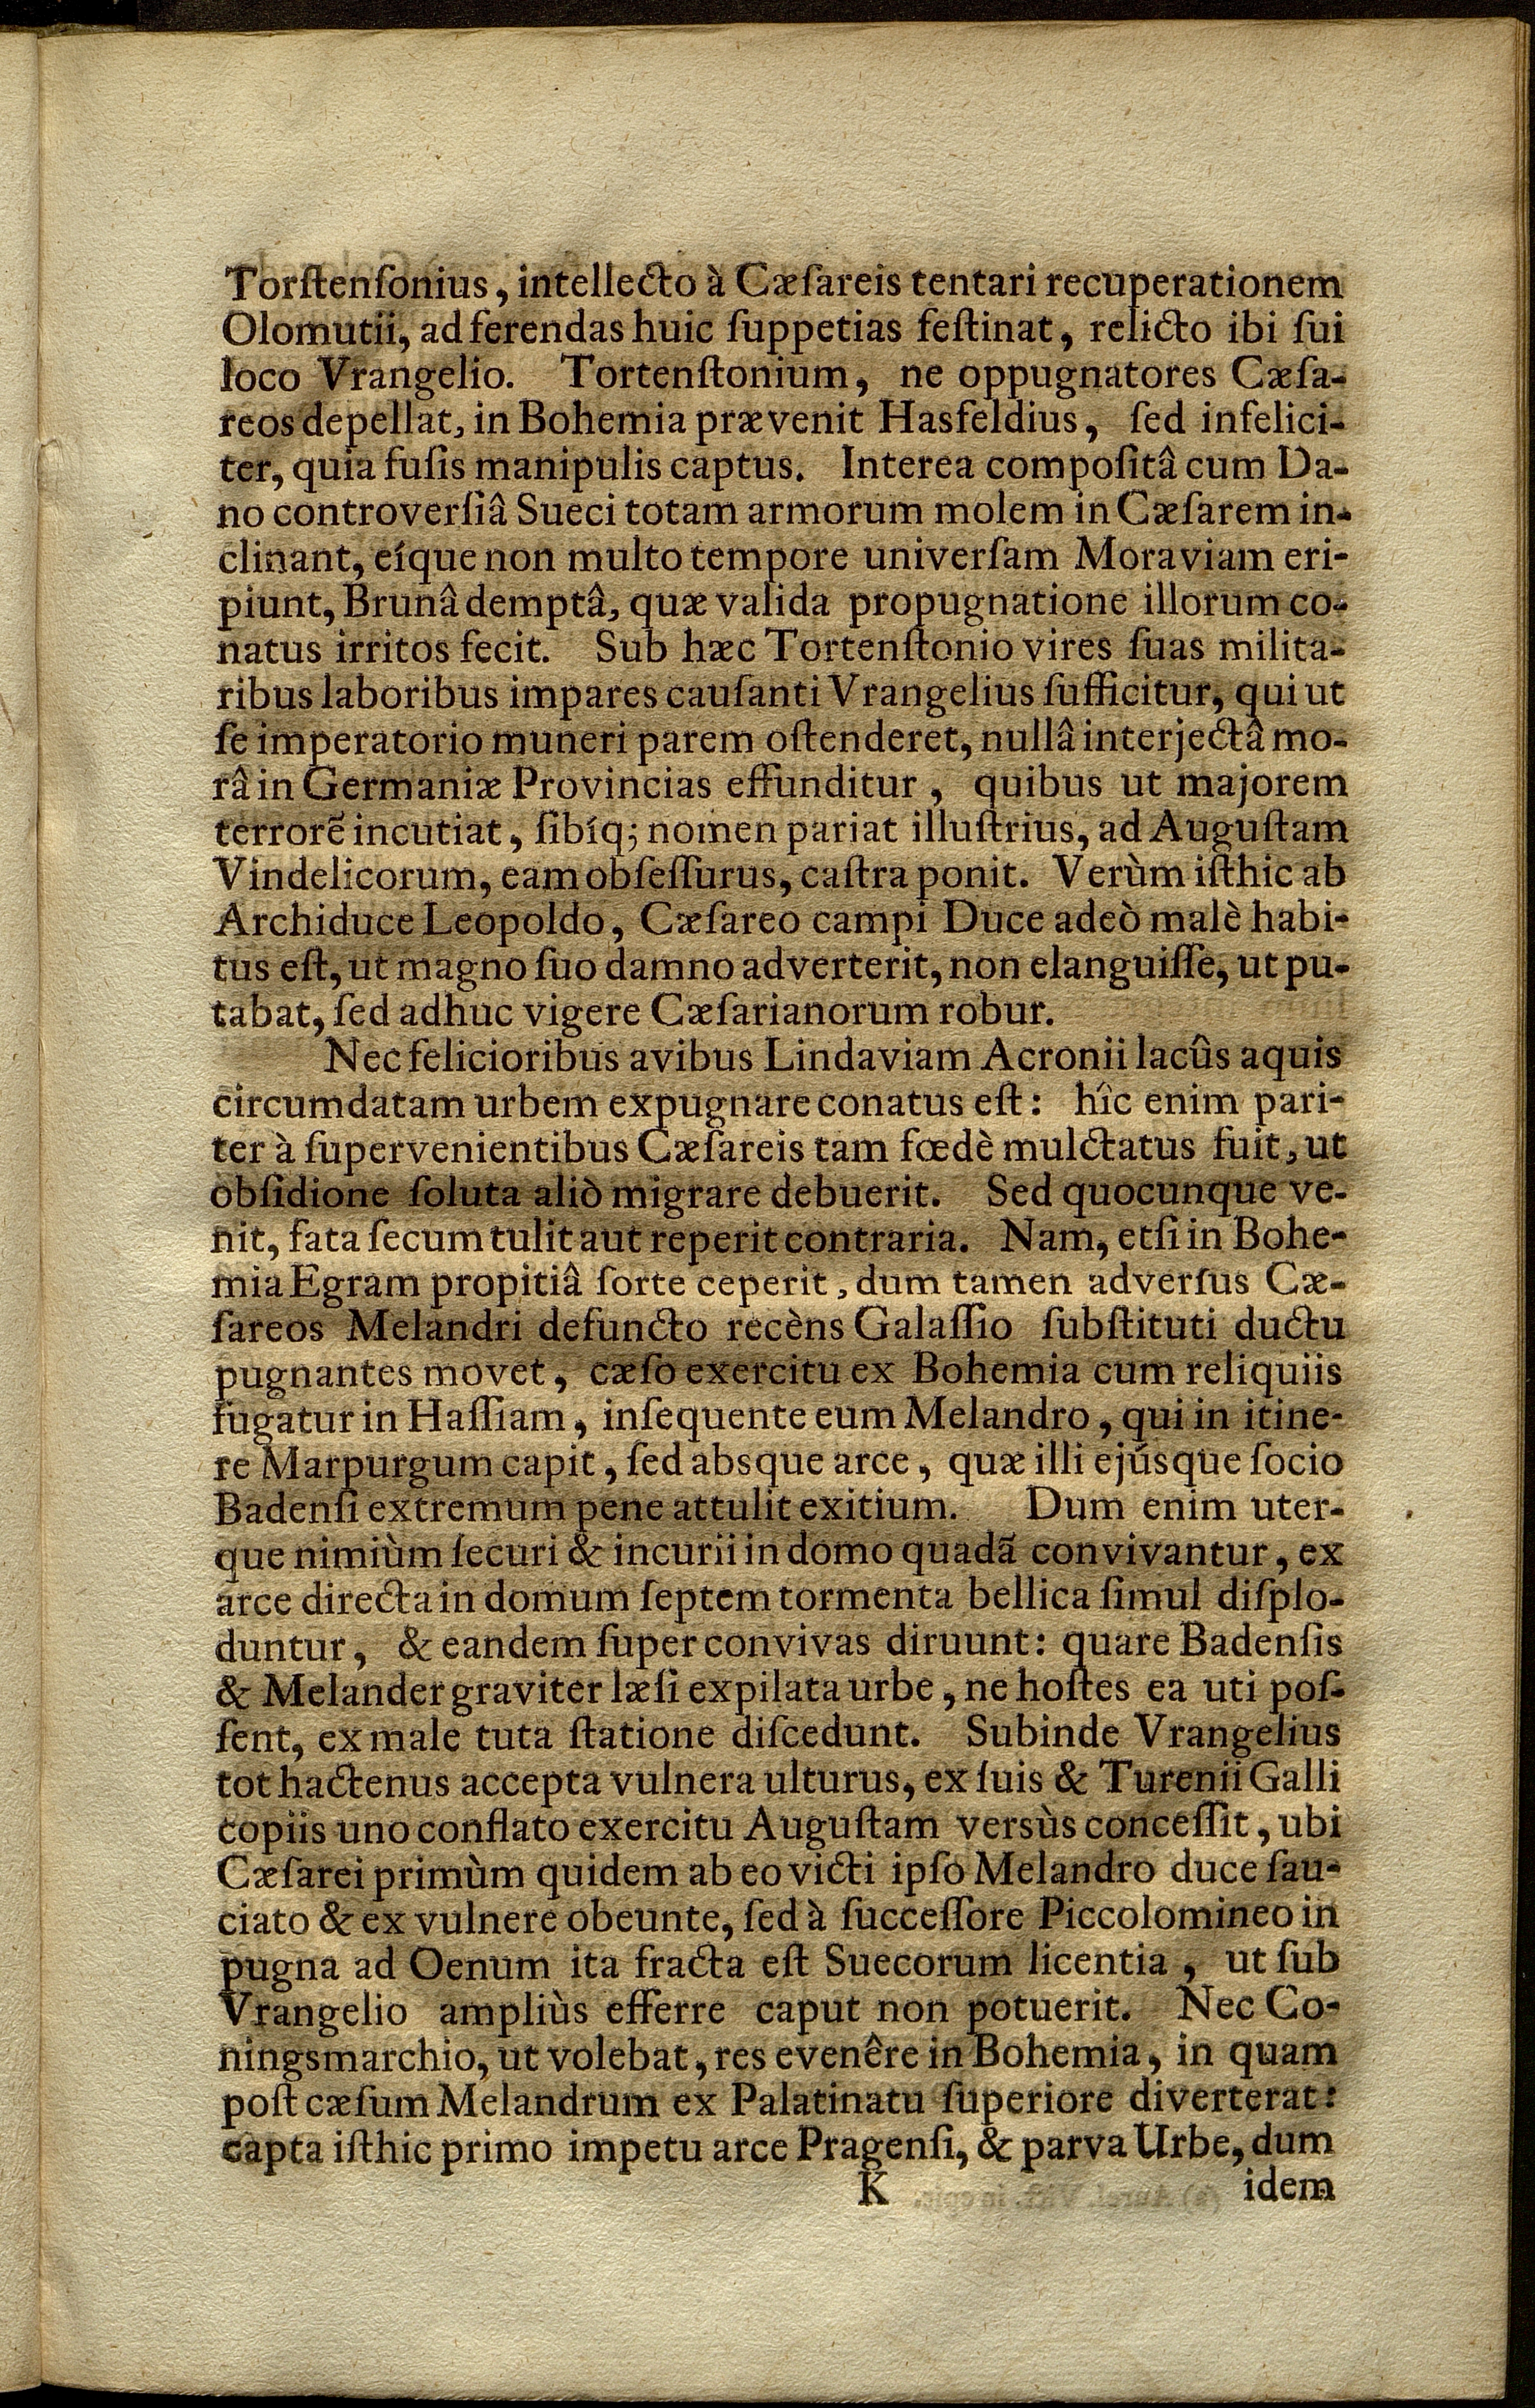 Torſtenſonius, intellecto à Cæſareis tentari recuperationem
Olomutii, ad ferendas huic ſuppetias feſtinat, relicto ibi ſui
loco Vrangelio. Tortenſtonium, ne oppugnatores Cæſa-
reos depellat, in Bohemia prævenit Hasfeldius, ſed infelici-
ter, quia fuſis manipulis captus. Interea compoſitâ cum Da-
no controverſiâ Sueci totam armorum molem in Cæſarem in-
clinant, eíque non multo tempore univerſam Moraviam eri-
piunt, Brunâ demptâ, quæ valida propugnatione illorum co-
natus irritos fecit. Sub hæc Tortenſtonio vires ſuas milita-
ribus laboribus impares cauſanti Vrangelius ſufficitur, qui ut
ſe imperatorio muneri parem oſtenderet, nullâ interjectâ mo-
râ in Germaniæ Provincias effunditur, quibus ut majorem
terrorē incutiat, ſibíq; nomen pariat illuſtrius, ad Auguſtam
Vindelicorum, eam obſeſſurus, caſtra ponit. Verùm iſthic ab
Archiduce Leopoldo, Cæſareo campi Duce adeò malè habi-
tus eſt, ut magno ſuo damno adverterit, non elanguiſſe, ut pu-
tabat, ſed adhuc vigere Cæſarianorum robur.
Nec felicioribus avibus Lindaviam Acronii lacûs aquis
circumdatam urbem expugnare conatus eſt: hîc enim pari-
ter à ſupervenientibus Cæſareis tam fœdè mulctatus fuit, ut
obſidione ſoluta aliò migrare debuerit. Sed quocunque ve-
nit, fata ſecum tulit aut reperit contraria. Nam, etſi in Bohe-
mia Egram propitiâ ſorte ceperit, dum tamen adverſus Cæ-
ſareos Melandri defuncto recèns Galaſſio ſubſtituti ductu
pugnantes movet, cæſo exercitu ex Bohemia cum reliquiis
fugatur in Haſſiam, inſequente eum Melandro, qui in itine-
re Marpurgum capit, ſed absque arce, quæ illi ejúsque ſocio
Badenſi extremum pene attulit exitium. Dum enim uter-
que nimiùm ſecuri & incurii in domo quadã convivantur, ex
arce directa in domum ſeptem tormenta bellica ſimul diſplo-
duntur, & eandem ſuper convivas diruunt: quare Badenſis
& Melander graviter læſi expilata urbe, ne hoſtes ea uti poſ-
ſent, ex male tuta ſtatione diſcedunt. Subinde Vrangelius
tot hactenus accepta vulnera ulturus, ex ſuis & Turenii Galli
copiis uno conflato exercitu Auguſtam versùs conceſſit, ubi
Cæſarei primùm quidem ab eo victi ipſo Melandro duce ſau-
ciato & ex vulnere obeunte, ſed à ſucceſſore Piccolomineo in
pugna ad Oenum ita fracta eſt Suecorum licentia, ut ſub
Vrangelio ampliùs efferre caput non potuerit. Nec Co-
ningsmarchio, ut volebat, res evenêre in Bohemia, in quam
poſt cæſum Melandrum ex Palatinatu ſuperiore diverterat:
capta iſthic primo impetu arce Pragenſi, & parva Urbe, dum
K idem